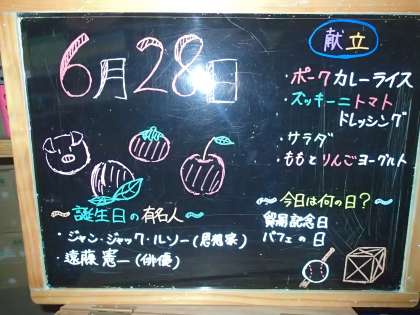 6月28日
献立
・ポークカレーライス
・ズッキーニトマト
ドレッシング
・サラダ
・ももとりんごヨーグルト
〜誕生日の有名人〜
・ジャン・ジャック・ルソー(思想家)
・遠藤憲一(俳優)
〜今日は何の日?〜
貿易記念日
パフェの日